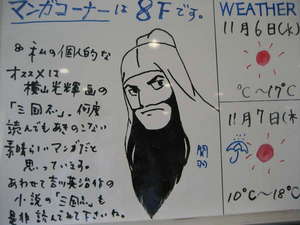 マンガコーナーは8Fです。
∞私の個人的な
オススメは
横山光輝画の
「三国志」。何度
読んでもあきのこない
素晴らしいマンガだと
思っています。
あわせて吉川英治作の
小説の「三国志」も
是非読んでみて下さいね。
関羽
WEATHER
11月6日(水)
℃〜17℃
11月7日(木)
10℃〜18℃